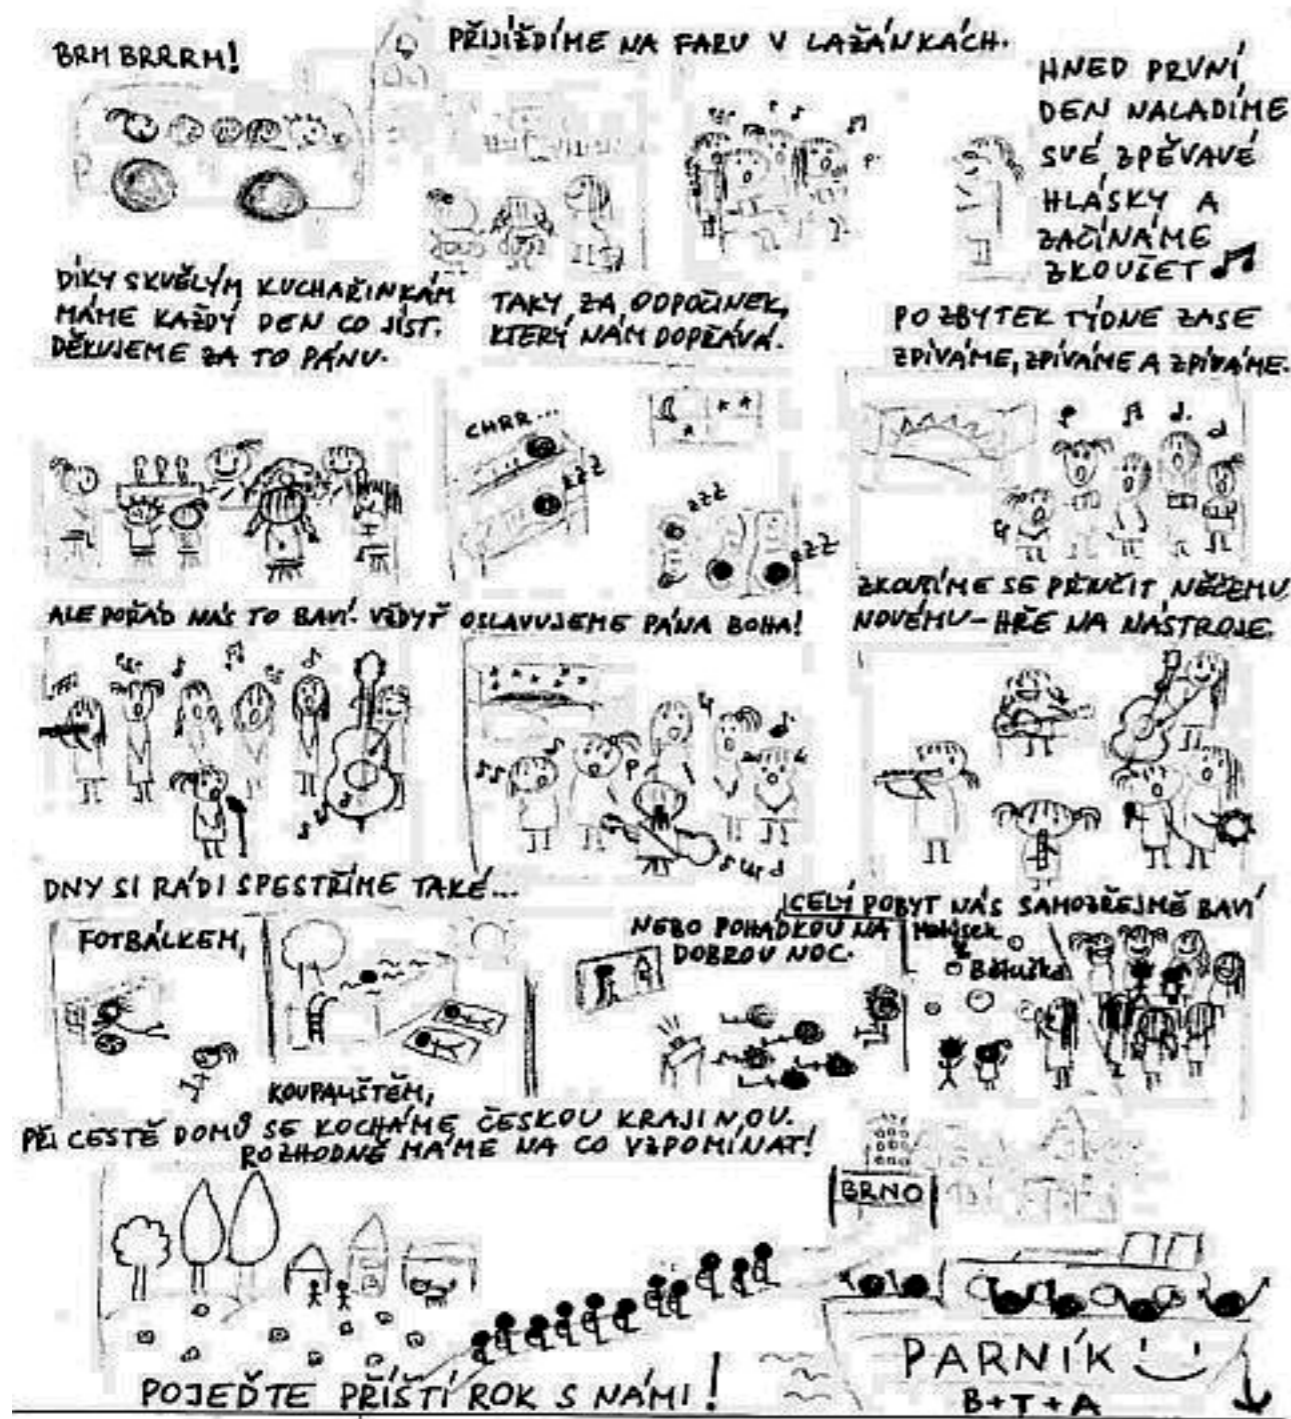 BRM BRRRM!
PŘIJÍŽDÍME NA FARU V LAŽÁNKÁCH.
HNED PRVNÍ
DEN NALADÍME
SVÉ ZPĚVAVÉ
HLÁSKY A
ZAČÍNÁME
ZKOUŠET
DÍKY SKVĚLÝM KUCHAŘINKÁM
MÁME KAŽDÝ DEN CO JÍST.
DĚKUJEME ZA TO PÁNU.
TAKY ZA ODPOČINEK,
KTERÝ NÁM DOPŘÁVÁ.
PO ZBYTEK TÝDNE ZASE
ZPÍVÁME, ZPÍVÁME A ZPÍVÁME.
CHRR...
ZZZ
ZZZ
ZZZ
ALE POŘÁD NÁS TO BAVÍ. VŽDYŤ OSLAVUJEME PÁNA BOHA!
ZKOUŠÍME SE PŘIUČIT NĚČEMU
NOVÉMU - HŘE NA NÁSTROJE.
DNY SI RÁDI SPESTŘÍME TAKÉ...
FOTBÁLKEM,
KOUPALIŠTĚM,
NEBO POHÁDKOU NA
DOBROU NOC.
CELÝ POBYT NÁS SAMOZŘEJMĚ BAVÍ
Bětuška
PŘI CESTĚ DOMŮ SE KOCHÁME ČESKOU KRAJINOU.
ROZHODNĚ MÁME NA CO VZPOMÍNAT!
BRNO
PARNÍK
B+T+A
POJEĎTE PŘÍŠTÍ ROK S NÁMI!